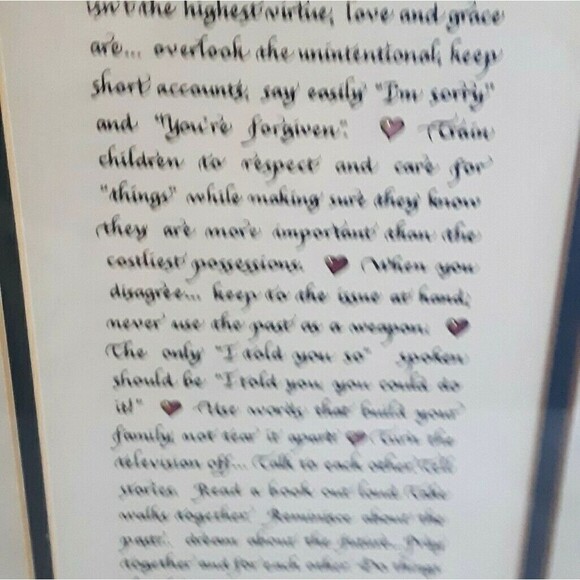 isn't the highest virtue; love and grace
are... overlook the unintentional, keep
short accounts, say easily "I'm sorry"
and "You're forgiven".   Train
children to respect and care for
"things" while making sure they know
they are more important than the
costliest possessions.   When you
disagree... keep to the issue at hand;
never use the past as a weapon.
The only "I told you so" spoken
should be "I told you, you could do
it!"   Use words that build your
family, not tear it apart!   Turn the
television off... Talk to each other. Tell
stories. Read a book out loud. Take
walks together. Reminisce about the
past... dream about the future. Pray
together and for each other. Do things